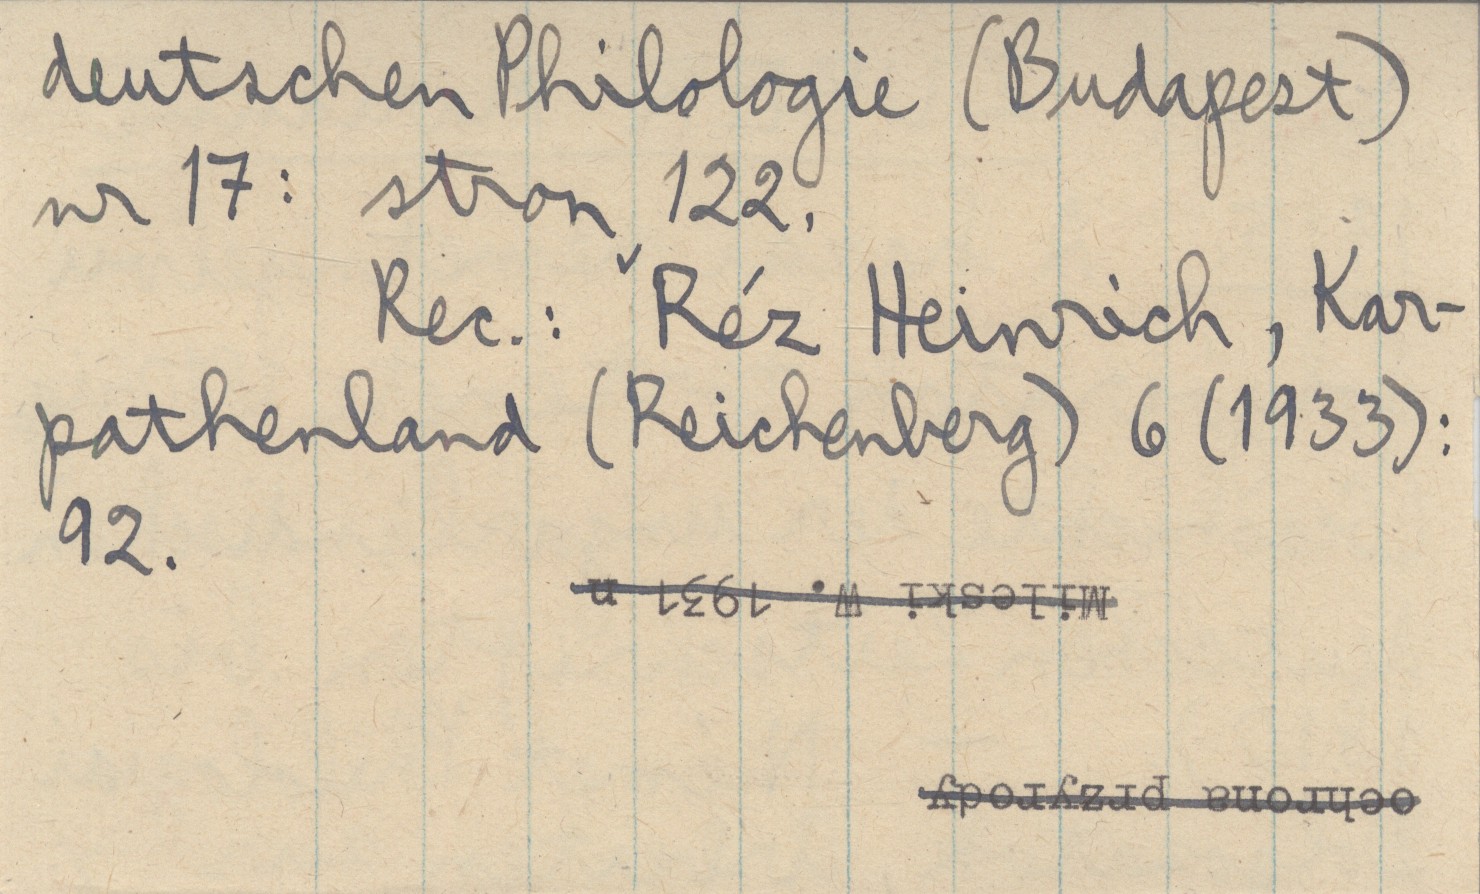 deutschen Philologie (Budapest)
nr 17: stron 122.
Rec.: Réz Heinrich, Kar-
pathenland (Reichenberg) 6 (1933):
92.
Mileski W. 1931 n
ochrona przyrody